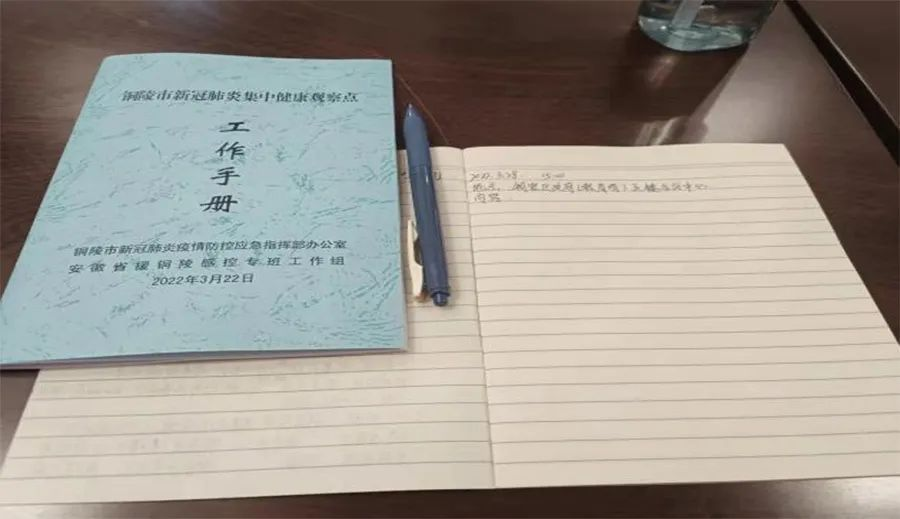 铜陵市新冠肺炎集中健康观察点
工作手册
铜陵市新冠肺炎疫情防控应急指挥部办公室
安徽省援铜陵感控专班工作组
2022年3月22日
2022.3.28 15:00
地点:
内容